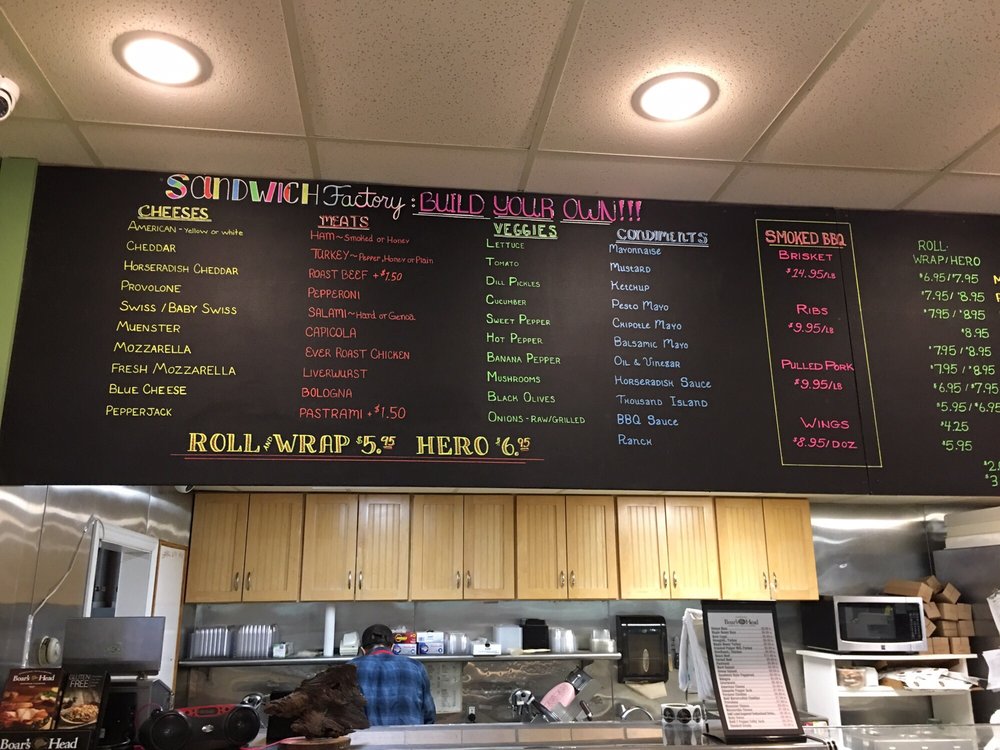 SANDWICH Factory: BUILD YOUR OWN!!!
CHEESES
AMERICAN - Yellow or white
CHEDDAR
HORSERADISH CHEDDAR
PROVOLONE
SWISS / BABY SWISS
MUENSTER
MOZZARELLA
FRESH MOZZARELLA
BLUE CHEESE
PEPPERJACK
MEATS
HAM ~ Smoked or Honey
TURKEY ~ Pepper, Honey or Plain
ROAST BEEF + $1.50
PEPPERONI
SALAMI ~ Hard or Genoa
CAPICOLA
EVER ROAST CHICKEN
LIVERWURST
BOLOGNA
PASTRAMI + $1.50
VEGGIES
LETTUCE
TOMATO
DILL PICKLES
CUCUMBER
SWEET PEPPER
HOT PEPPER
BANANA PEPPER
MUSHROOMS
BLACK OLIVES
ONIONS - RAW/GRILLED
CONDIMENTS
MAYONNAISE
MUSTARD
KETCHUP
PESTO MAYO
CHIPOTLE MAYO
BALSAMIC MAYO
OIL & VINEGAR
HORSERADISH SAUCE
THOUSAND ISLAND
BBQ SAUCE
RANCH
ROLL AND WRAP $5.95 HERO $6.95
SMOKED BBQ
BRISKET
$14.95/LB
RIBS
$9.95/LB
PULLED PORK
$9.95/LB
WINGS
$8.95/DOZ
ROLL-
WRAP/HERO
$6.95/$7.95
$7.95/$8.95
$7.95/$8.95
$8.95
$7.95/$8.95
$7.95/$8.95
$6.95/$7.95
$5.95/$6.95
$4.25
$5.95
Boar's Head
GLUTEN FREE
Boar's Head
Boar's Head